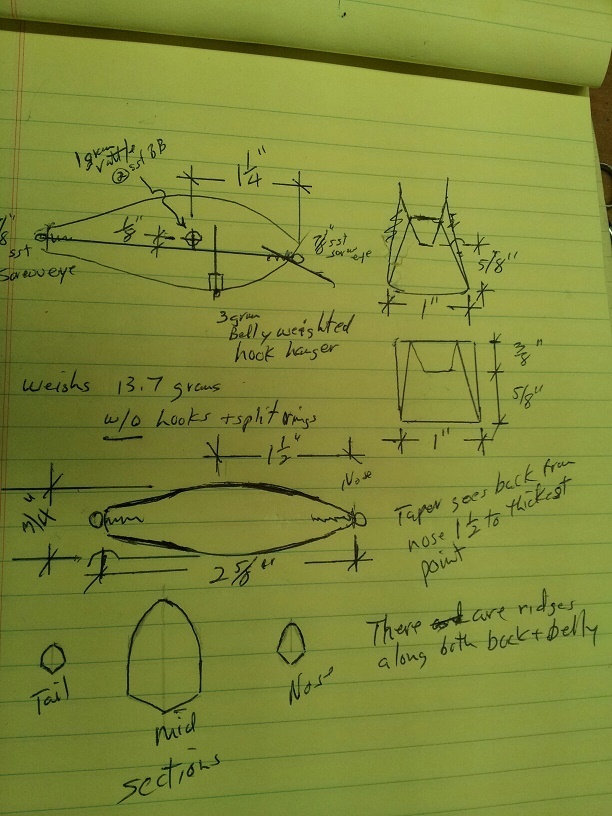 1 gram
rattle
② sst BB
1 1/4"
1/8"
7/8"
sst
Screw eye
7/8" sst
screw
eye
5/8"
1"
3 gram
Belly weighted
hook hanger
3/8"
5/8"
1"
weighs 13.7 grams
w/o hooks + split rings
1 1/2"
Nose
3/4"
2 5/8"
Taper goes back from
nose 1 1/2 to thickest
point
There are ridges
along both back + belly
Tail
Mid
Nose
sections